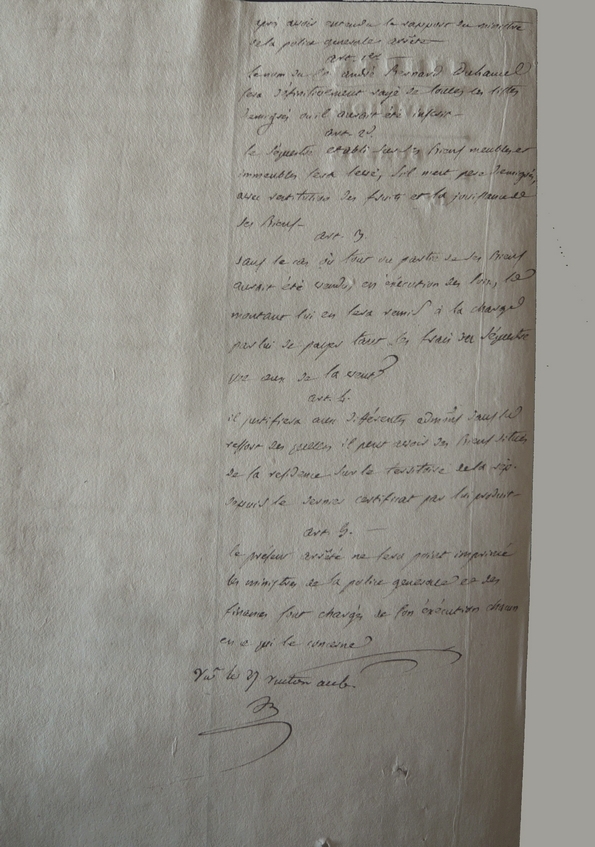 après avoir entendu le rapport du ministre
de la police generale arrête
art. 1er
le nom du Cn andré Bernard Duhamel
sera définitivement rayé de toutes les listes
d'emigrés où il auroit été inscrit
art. 2.
le séquestre etabli sur ses Biens meubles et
immeubles sera levé, s'il n'est pere d'emigré,
avec restitution des fruits et la jouissance de
ses Biens
art. 3.
dans le cas où tout ou partie de ses Biens
auroit été vendu en exécution des loix, le
montant lui en sera remis à la charge
par lui de payer tant les frais du séquestre
que ceux de la vente
art. 4.
il justifiera aux différentes admons dans le
ressort des quelles il peut avoir des Biens situés
de la residence sur le territoire de la rép.
depuis le dernier certificat par lui produit
art. 5.
le présent arrêté ne sera point imprimé
les ministres de la police generale et des
finances sont chargés de son éxécution chacun
en ce qui le concerne
le 27